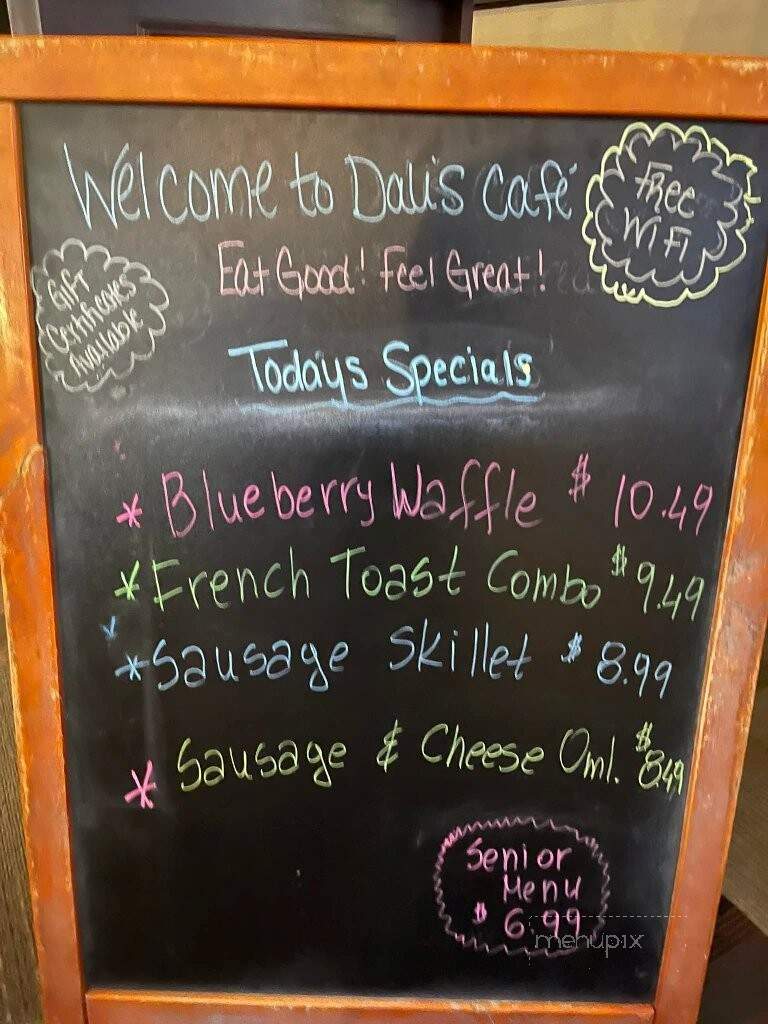 Welcome to Dali's Café
Free
WiFi
Eat Good! Feel Great!
Gift
Certificates
Available
Todays Specials
* Blueberry Waffle $ 10.49
* French Toast Combo $ 9.49
* Sausage Skillet $ 8.99
* Sausage & Cheese Oml. $ 8.49
Senior
Menu
$ 6.99
menupix